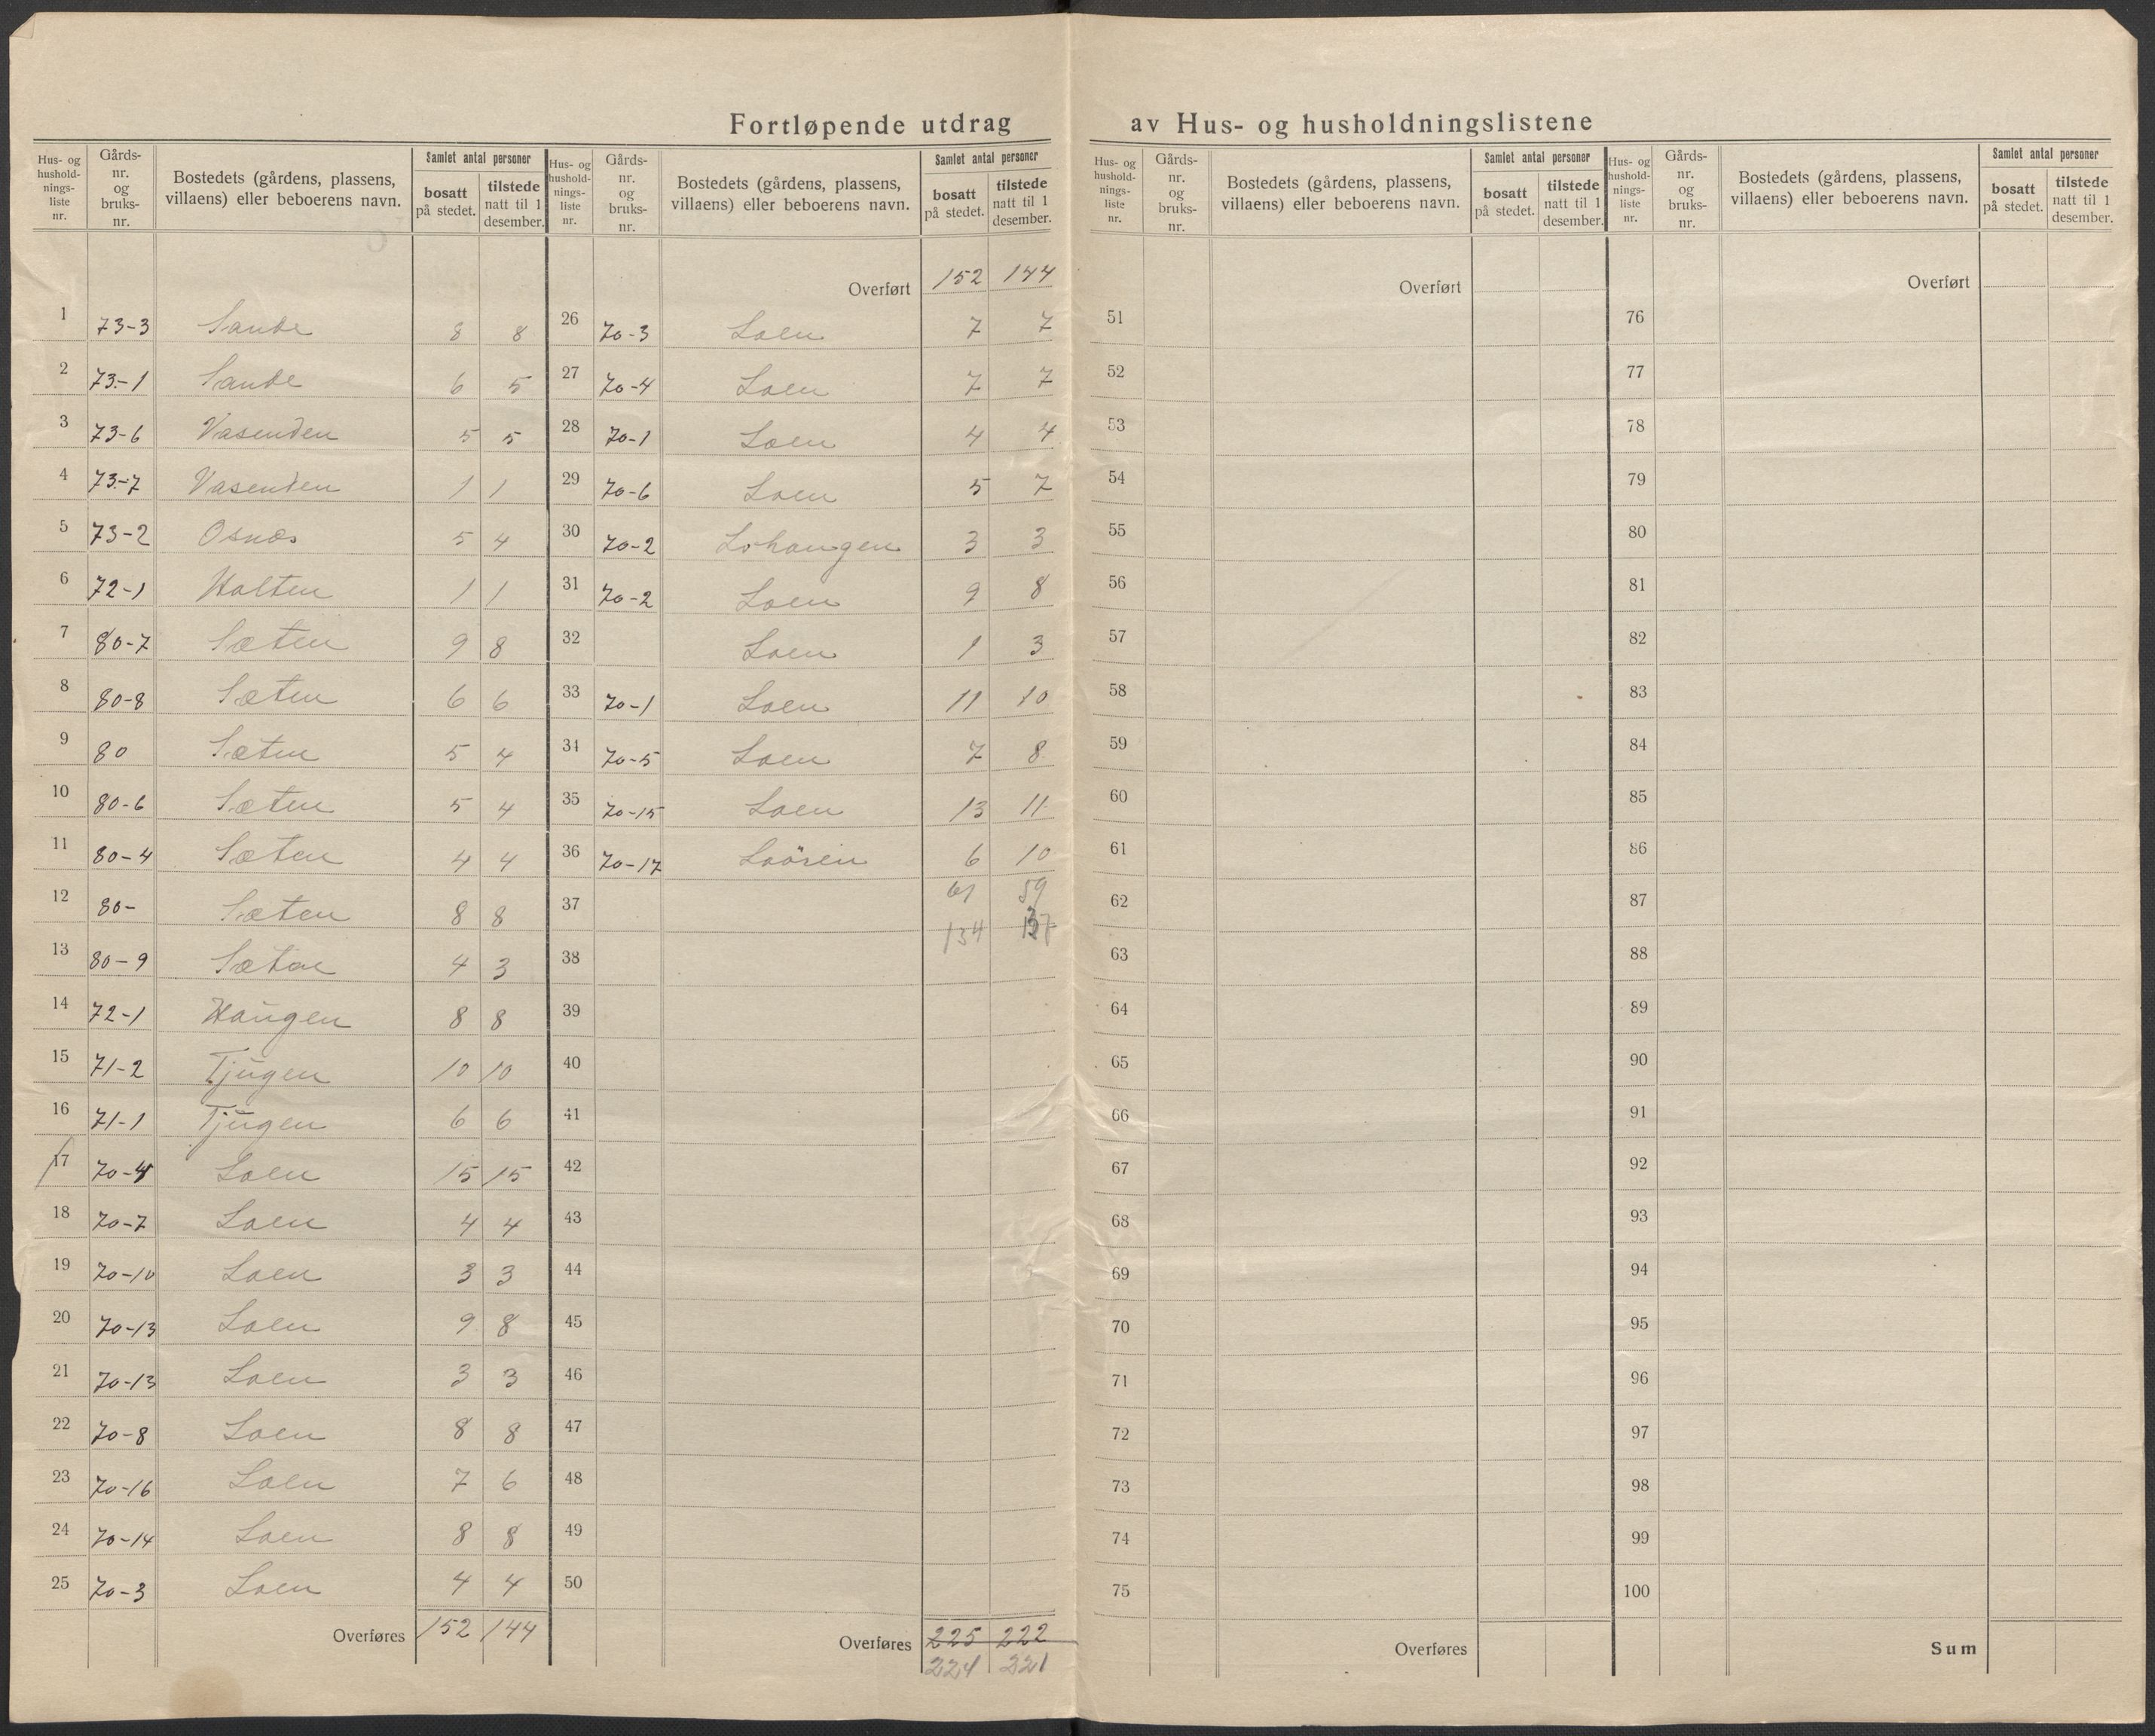 Fortløpende utdrag av Hus- og husholdningslistene
Hus- og husholdnings-liste nr. | Gårds-nr. og bruks-nr. | Bostedets (gårdens, plassens, villaens) eller beboerens navn. | Samlet antal personer bosatt på stedet. | tilstede natt til 1 desember.
1 73-3 Sande 8 8
2 73-1 Sande 6 5
3 73-6 Vasenden 5 5
4 73-7 Vasenden 1 1
5 73-2 Osnes 5 4
6 72-1 Holten 1 1
7 80-7 Sæten 9 8
8 80-8 Sæten 6 6
9 80 Sæten 5 4
10 80-6 Sæten 5 4
11 80-4 Sæten 4 4
12 80- Sæten 8 8
13 80-9 Sæten 4 3
14 72-1 Haugen 8 8
15 71-2 Tjugen 10 10
16 71-1 Tjugen 6 6
17 70-4 Loen 15 15
18 70-7 Loen 4 4
19 70-10 Loen 3 3
20 70-13 Loen 9 8
21 70-13 Loen 3 3
22 70-8 Loen 8 8
23 70-16 Loen 7 6
24 70-14 Loen 8 8
25 70-3 Loen 4 4
Overføres 152 144
Hus- og husholdnings-liste nr. | Gårds-nr. og bruks-nr. | Bostedets (gårdens, plassens, villaens) eller beboerens navn. | Samlet antal personer bosatt på stedet. | tilstede natt til 1 desember.
Overført 152 144
26 70-3 Loen 7 7
27 70-4 Loen 7 7
28 70-1 Loen 4 4
29 70-6 Loen 5 7
30 70-2 Lohaugen 3 3
31 70-2 Loen 9 8
32 Loen 1 3
33 70-1 Loen 11 10
34 70-5 Loen 7 8
35 70-15 Loen 13 11
36 70-17 Loören 6 10
37 61 59
134 137
38
39
40
41
42
43
44
45
46
47
48
49
50
Overføres 225 222
224 221
Hus- og husholdnings-liste nr. | Gårds-nr. og bruks-nr. | Bostedets (gårdens, plassens, villaens) eller beboerens navn. | Samlet antal personer bosatt på stedet. | tilstede natt til 1 desember.
Overført
51
52
53
54
55
56
57
58
59
60
61
62
63
64
65
66
67
68
69
70
71
72
73
74
75
Overføres
Hus- og husholdnings-liste nr. | Gårds-nr. og bruks-nr. | Bostedets (gårdens, plassens, villaens) eller beboerens navn. | Samlet antal personer bosatt på stedet. | tilstede natt til 1 desember.
Overført
76
77
78
79
80
81
82
83
84
85
86
87
88
89
90
91
92
93
94
95
96
97
98
99
100
Sum